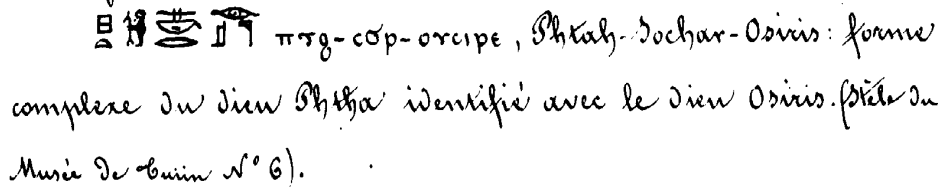 ⲡⲧϩ-ⲥⲟ̄ⲣ-ⲟⲩⲥⲓⲣⲉ, Phtah-Sochar-Osiris: forme
complexe du dieu Phtha identifié avec le dieu Osiris. (Stèle du
Musée de Turin N° 6).